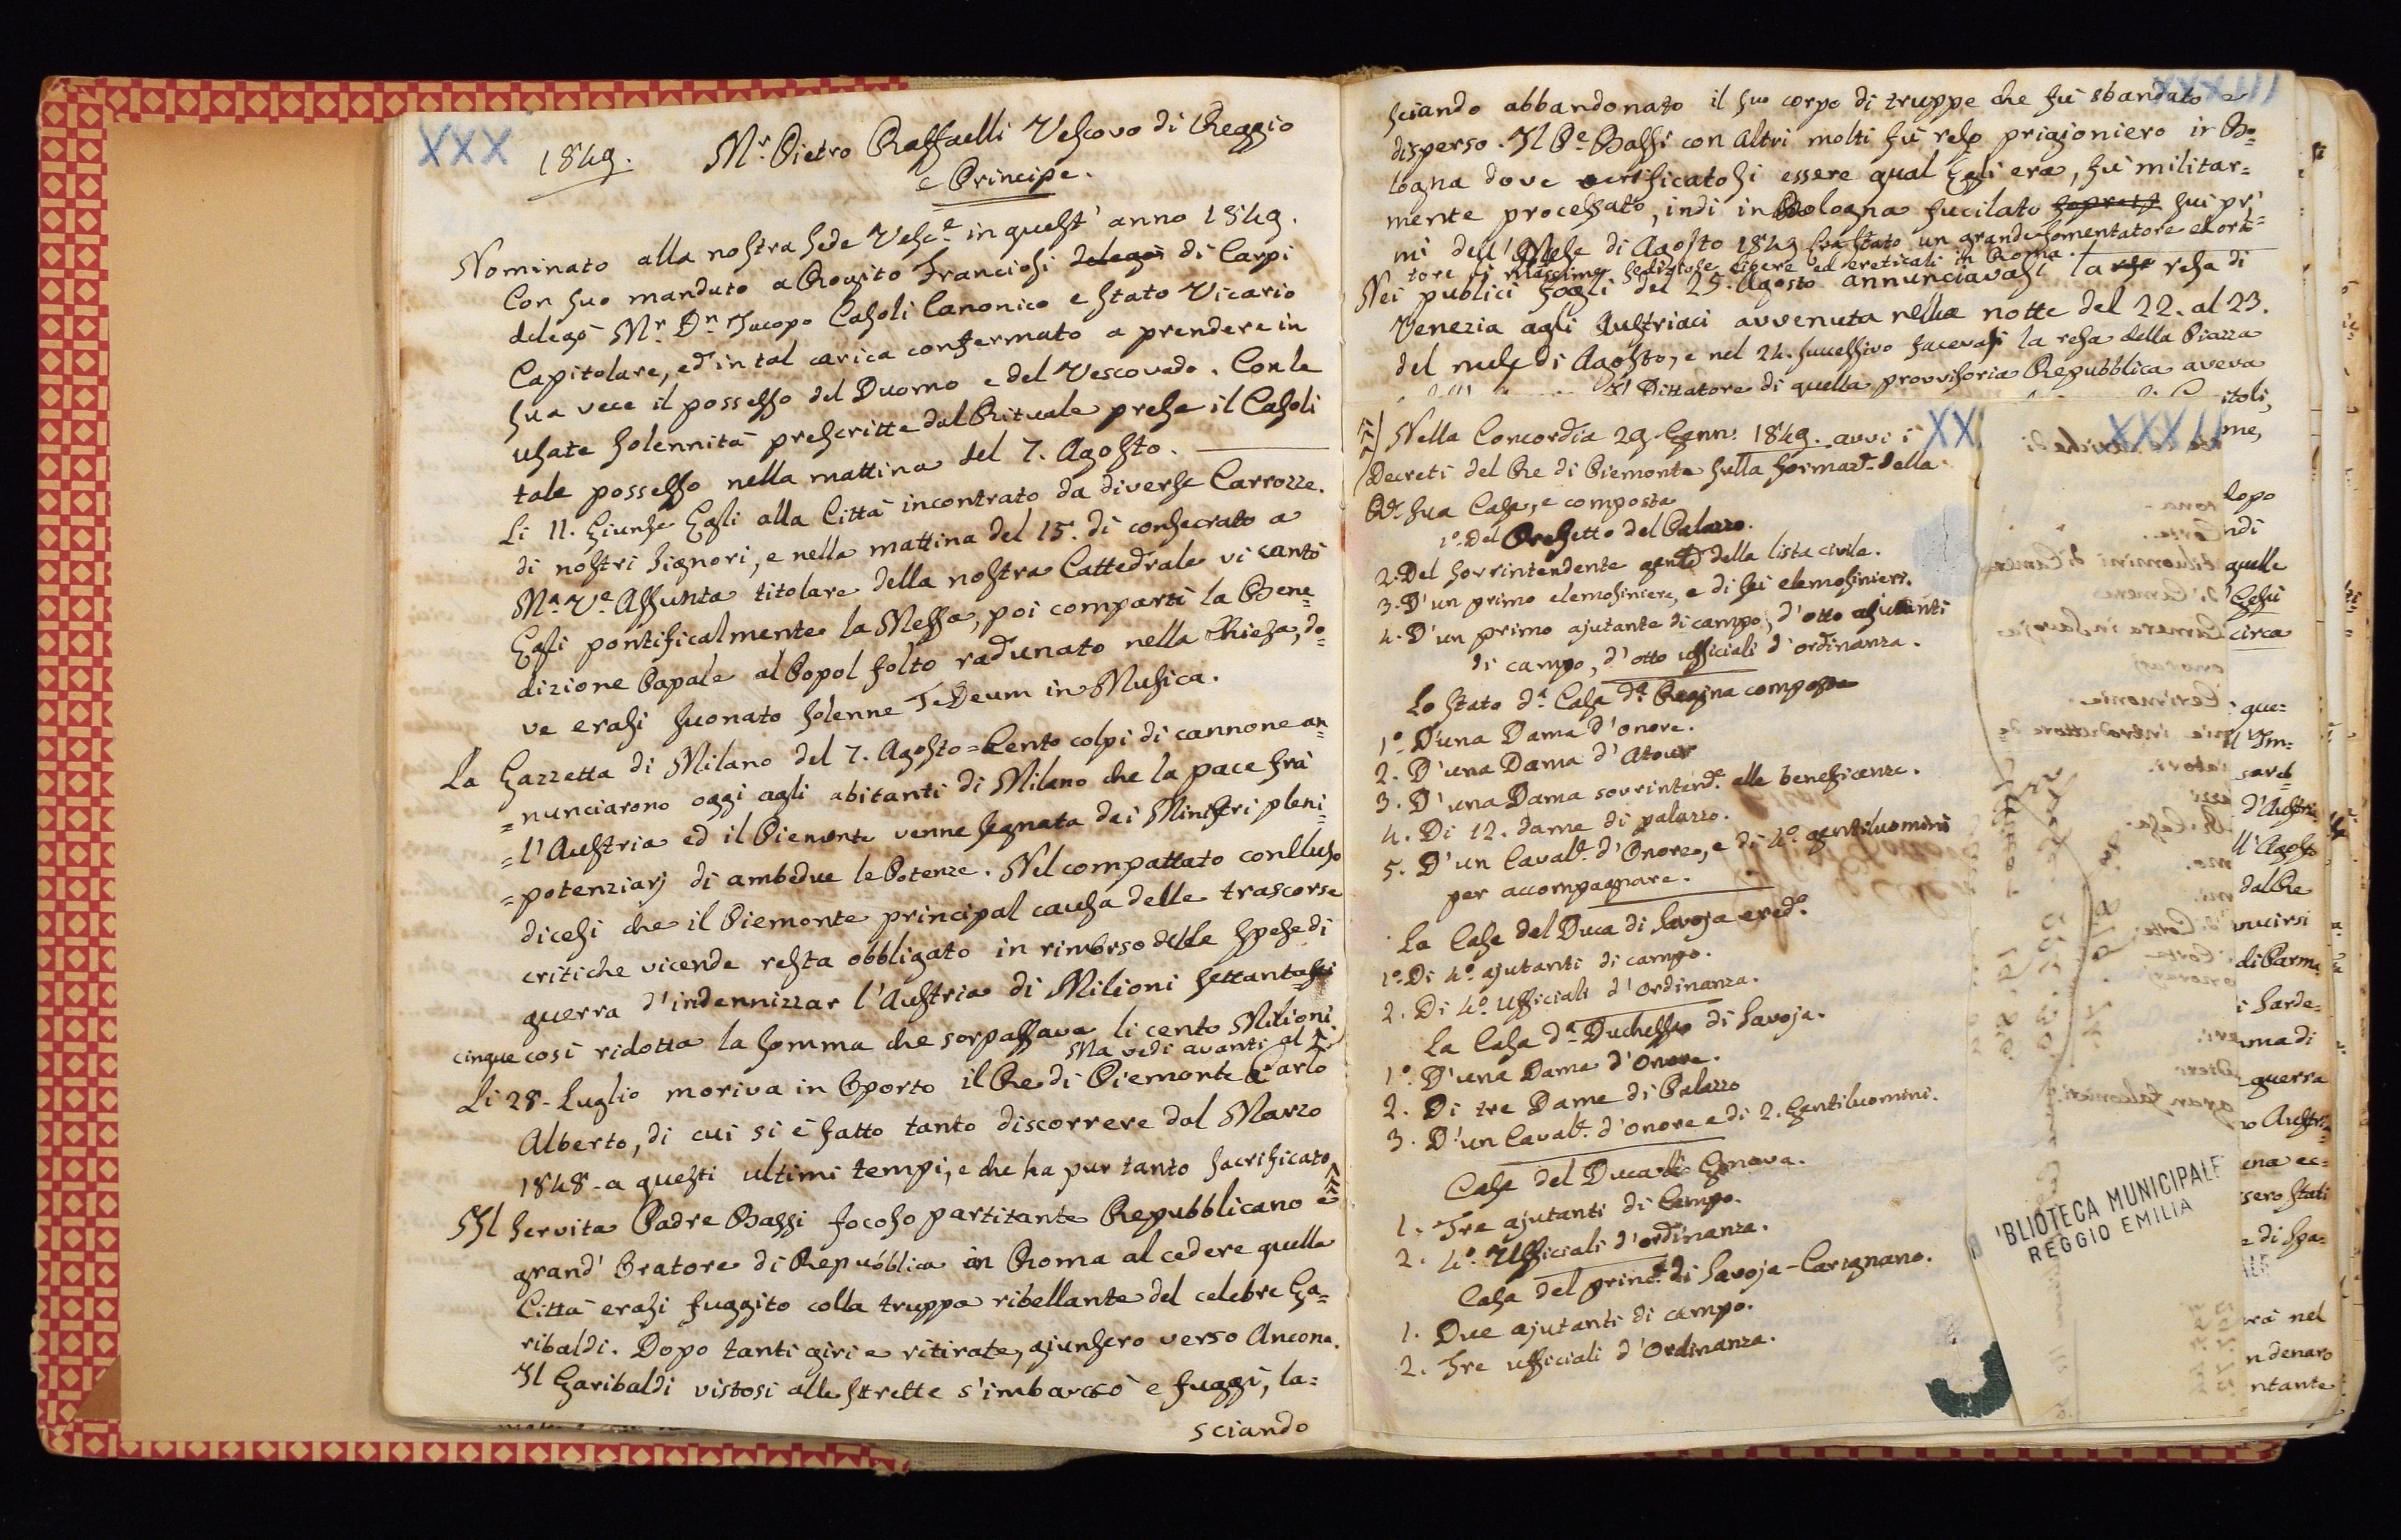 XXX
1849. Mr. Pietro Raffaelli Vescovo di Reggio
e Principe.
Nominato alla nostra Sede Vesc.e in quest' anno 1849.
Con suo mandato a Rogito Franciosi delegò di Carpi
delegò Mr. Dn. Jacopo Casoli Canonico e stato Vicario
Capitolare, ed in tal carica confermato a prendere in
sua vece il possesso del Duomo e del Vescovado. Con le
usate solennità prescritte dal Rituale prese il Casoli
tale possesso nella mattina del 7. Agosto.
Li 11. Giunse Egli alla Città incontrato da diverse Carrozze.
di nostri Signori, e nella mattina del 15. di consecrato a
Ma. Ve. Assunta titolare della nostra Cattedrale vi cantò
Egli pontificalmente la Messa, poi compartì la Bene=
dizione Papale al Popol folto radunato nella Chiesa, do=
ve erasi suonato solenne TeDeum in Musica.
La Gazzetta di Milano del 7. Agosto = Cento colpi di cannone an=
=nunciarono oggi agli abitanti di Milano che la pace frà
=l'Austria ed il Piemonte venne segnata dai Ministri pleni=
=potenziarj di ambedue le Potenze. Nel compattato concluso
dicesi che il Piemonte principal causa delle trascorse
critiche vicende resta obbligato in rimborso delle spese di
guerra d'indennizzar l'Austria di Milioni settanta
cinque così ridotta la somma che sorpassava li cento Milioni.
Ma vedi avanti al
Li 28. Luglio moriva in Oporto il Re di Piemonte Carlo
Alberto, di cui si è fatto tanto discorrere dal Marzo
1848. a questi ultimi tempi, e che ha pur tanto sacrificato
Il servita Padre Bassi focoso partitante Repubblicano e
grand' Oratore di Repubblica in Roma al cedere quella
Città erasi fuggito colla truppa ribellante del celebre Ga=
ribaldi. Dopo tanti giri e ritirate, giunsero verso Ancona.
Il Garibaldi vistosi alle strette s'imbarcò e fuggì, la=
sciando
XXXIII
sciando abbandonato il suo corpo di truppe che fù sbandato e
disperso. Il Pe. Bassi con altri molti fù reso prigioniero in Bo=
logna dove verificatosi essere qual Egli era, fù militar=
mente processato, indi in Bologna fucilato sui pri=
mi dell' Mese di Agosto 1849. Era stato un grande fomentatore ed ora=
tore di massime sediziose, libere ed ereticali in Roma.
Nei publici fogli del 25. Agosto annunciavasi la resa di
Venezia agli Austriaci avvenuta nella notte del 22. al 23.
del mese di Agosto, e nel 24. successivo facevasi la resa della Piazza
Il Dittatore di quella provvisoria Repubblica aveva
itoli,
me,
XX
XXXII
Nella Concordia 29. Genn. 1849. avvi i
Decreti del Re di Piemonte sulla formaz.e della
Rl. sua Casa, e composta
1º. Del Prefetto del Palazzo.
2. Del sovrintendente genle. della lista civile.
3. D'un primo elemosiniere, e di sei elemosinieri.
4. D'un primo ajutante di campo, d'otto ajutanti
di campo, d'otto ufficiali d'ordinanza.
Lo stato da. Casa da. Regina composta
1º. D'una Dama d'onore.
2. D'una Dama d'Atour
3. D'una Dama sovrintend.e alle beneficenze.
4. Di 12. dame di palazzo.
5. D'un Caval.e d'Onore, e di 4º. gentiluomini
per accompagnare.
La Casa del Duca di Savoja ered.o
1º. Di 4º. ajutanti di campo.
2. Di 4º. Ufficiali d'Ordinanza.
La Casa da. Duchessa di Savoja.
1º. D'una Dama d'Onore.
2. Di tre Dame di Palazzo
3. D'un Caval.e d'onore e di 2. Gentiluomini.
Casa del Duca di Genova.
1. Tre ajutanti di Campo.
2. 4º. Ufficiali d'ordinanza.
Casa del princ.e di Savoja-Carignano.
1. Due ajutanti di campo.
2. Tre ufficiali d'Ordinanza.
dopo
ndi
quelle
Gesù
circa
que=
l'Im=
d'Austri
Agosto
dal Re
nucirsi
di Parma
i Sarde=
ma di
guerra
o Austri=
ena ec=
sero stati
e di Spa=
rà nel
n denaro
ntante
BIBLIOTECA MUNICIPALE
REGGIO EMILIA